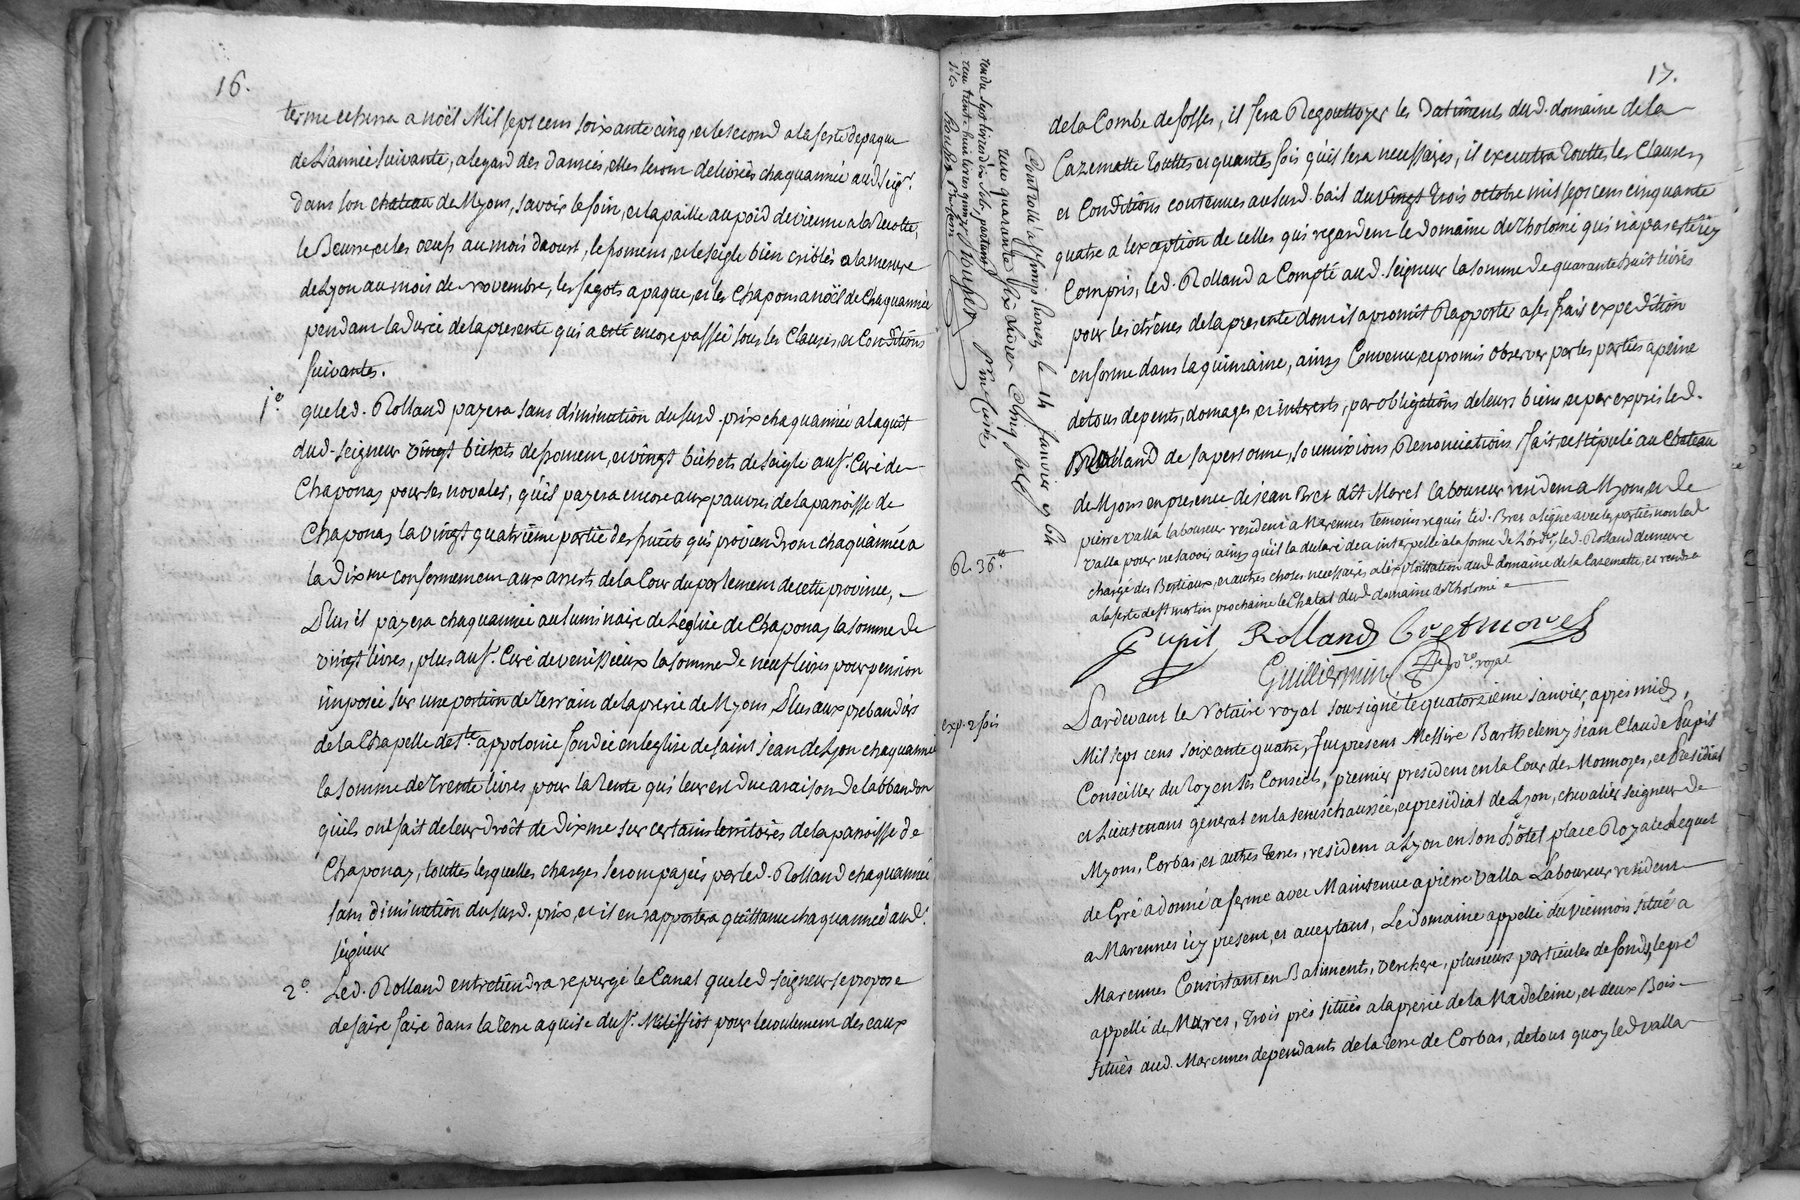 16.
terme echerra a nöël Mil sept cens soixante cinq, et le second a la feste de paque
de L'année suivante, a legard des danrées, elles seront delivrées chaquannée aud seigr.
dans son chateau de Myons, savoir le foin, et la paille au poid de vienne a la recolte,
le Beurre et les œufs au mois daoust, le froment, et le seigle bien criblés a la mesure
de Lyon au mois de novembre, les fagots a paque, et les Chapons a nöël de Chaquannée
pendant la durée de la presente qui a esté encore passée sous les Clauses et Conditions
suivantes.
1°. que led. Rolland payera sans diminution du surd. prix chaquannée a laquit
dud. seigneur vingt bichets de froment, et vingt bichets de seigle au sr. Curé de
Chaponay pour ses novales, qu'il payera encore aux pauvres de la paroisse de
Chaponay la vingt quatrième partie des fruits qui proviendront chaquannée a
la dixme conformement aux arrests de la Cour du parlement de cette province,
Plus il payera chaquannée au luminaire de L'eglise de Chaponay la somme de
vingt livres, plus au sr. Curé de venissieux la somme de neuf livres pour pension
imposée sur une portion de terrain de la prerie de Myons, Plus aux prebandiers
de la Chapelle de Ste. appolonie fondée en leglise de saint jean de Lyon chaquannée
la somme de trente livres pour la rente qui leur est due a raison de labbandon
quils ont fait de leur droit de dixme sur certains territoires de la paroisse de
Chaponay, touttes lesquelles charges seront payées par led. Rolland chaquannée
sans diminution du surd. prix, et il en rapportera quittance chaquannée aud.
seigneur
2°. Led. Rolland entretiendra repurgé le Canal que led seigneur se propose
de faire faire dans la terre aquise du sr. Meliffiot pour lecoulement des eaux
17.
de la Combe de fosses, il fera Regouttoyer les Batiments dud. domaine de la
Cazematte touttes et quantes fois qu'il sera necessaires, il executra touttes les Clauses
et Conditions contenues au surd. bail du vingt trois octobre mil sept cens cinquante
quatre a l'exception de celles qui regardent le domaine de Tholomé qui n'a pas esté icy
Compris, led. Rolland a Compté aud. seigneur la somme de quarante huit livres
pour les étrenes de la presente dont il a promit Rapporter a ses frais expedition
en forme dans la quinzaine, ainsy Convenu, et promis observer par les parties a peine
de tous depents, domages et interests, par obligations de leurs biens et par exprés led.
Rolland de sa personne, soumixions Renonciations, fait et stipulé au Chateau
de Myons en presence de jean Bret dit Morel laboureur resident a Myons et de
pierre valla laboureur resident a Marennes temoins requis led. Bret a signé avec les parties non led
valla pour ne savoir ainsy qu'il la declaré de ce interpellé a la forme de L'ordce, led. Rolland demeure
chargé des Bestiaux, et autres choses necessaire, a lexploittation dud. domaine de la Cazematte, et rendra
a la feste de st martin prochaine le Chatal dud domaine de tholomé
Pupil Rolland Bretmorel
Guilliermin Nore. royal
Controllé a st simphorien le 14 janvier 1764
reçu quarante six livres cinq sols
R. 36.
exp. 2 fois
Pardevant le Notaire royal sousigné le quatorzieme janvier, apres midy,
Mil sept cens soixante quatre, fut present Messire Barthelemy jean Claude Pupil
Conseiller du Roy en ses Conseils, premier president en la Cour des Monnoyes, et Presidial
et Lieutenant general en la seneschaussée, et presidial de Lyon, chevalier seigneur de
Myons, Corbas, et autres terres, resident a Lyon en son hôtel place Royale Lequel
de Gré a donné a ferme avec Maintenue a pierre valla Laboureur resident
a Marennes icy present, et acceptant, Le domaine appellé du viennois situé a
Marennes Consistant en Batiments, verchere, plusieurs particules de fonds, le pré
appellé de Mures, trois prés situés a la prerie de la Madeleine, et deux Bois
situés aud. Marennes dependants de la terre de Corbas, de tous quoy led valla